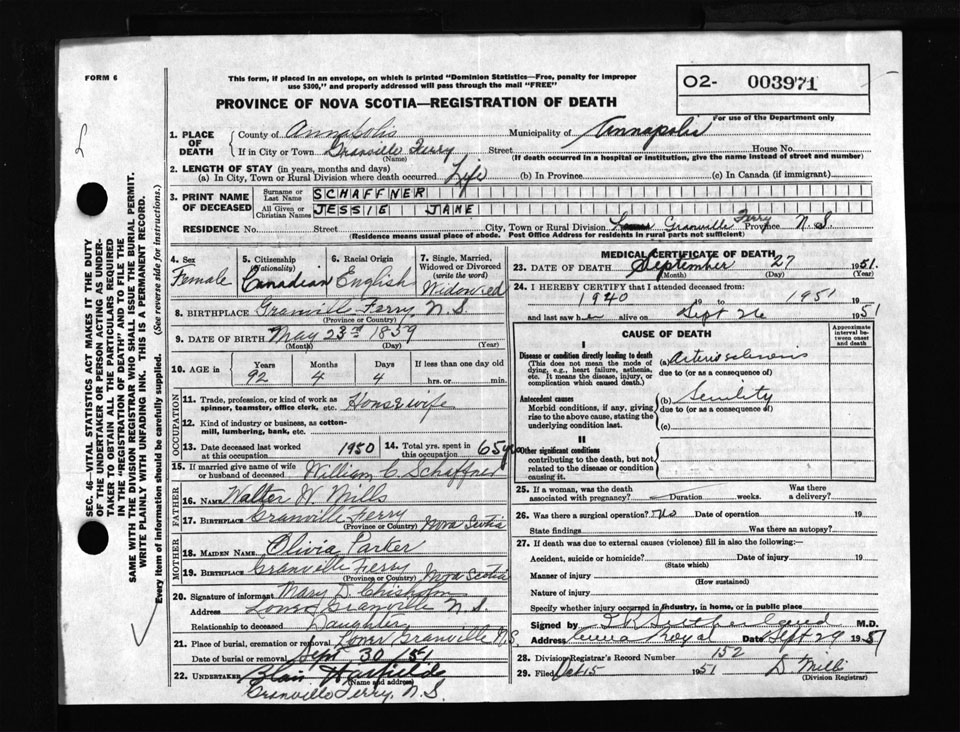 FORM 6
This form, if placed in an envelope, on which is printed "Dominion Statistics—Free, penalty for improper
use $300," and properly addressed will pass through the mail "FREE"
O2- 003971
For use of the Department only
PROVINCE OF NOVA SCOTIA—REGISTRATION OF DEATH
1. PLACE OF DEATH
County of Annapolis Municipality of Annapolis
If in City or Town Granville Ferry Street House No.
(Name) (If death occurred in a hospital or institution, give the name instead of street and number)
2. LENGTH OF STAY (in years, months and days)
(a) In City, Town or Rural Division where death occurred Life (b) In Province (c) In Canada (if immigrant)
3. PRINT NAME OF DECEASED
Surname or Last Name SCHAFFNER
All Given or Christian Names JESSIE JANE
RESIDENCE No. Street City, Town or Rural Division Granville Ferry Province N.S.
(Residence means usual place of abode. Post Office Address for residents in rural parts not sufficient)
4. Sex Female
5. Citizenship (Nationality) Canadian
6. Racial Origin English
7. Single, Married, Widowed or Divorced (write the word) Widowed
8. BIRTHPLACE Granville Ferry N.S.
(Province or Country)
9. DATE OF BIRTH May 23rd 1859
(Month) (Day) (Year)
10. AGE in Years Months Days If less than one day
92 4 4 hrs. or min.
OCCUPATION
11. Trade, profession, or kind of work as
spinner, teamster, office clerk, etc. Housewife
12. Kind of industry or business, as cotton-
mill, lumbering, bank, etc.
13. Date deceased last worked
at this occupation 1950
14. Total yrs. spent in
this occupation 65 yrs
15. If married give name of wife
or husband of deceased William C Schaffner
FATHER
16. Name Walter W Mills
17. BIRTHPLACE Granville Ferry Nova Scotia
(Province or Country)
MOTHER
18. MAIDEN NAME Olivia Parker
19. BIRTHPLACE Granville Ferry Nova Scotia
(Province or Country)
20. Signature of informant Mary D. Chisholm
Address Lower Granville N.S.
Relationship to deceased Daughter
21. Place of burial, cremation or removal Lower Granville N.S.
Date of burial or removal Sept 30 1951
22. UNDERTAKER Blair
(Name and address)
Granville Ferry, N.S.
MEDICAL CERTIFICATE OF DEATH
23. DATE OF DEATH September 27 1951.
(Month) (Day) (Year)
24. I HEREBY CERTIFY that I attended deceased from:
1940 19 to 1951 19
and last saw her alive on Sept 26 1951
CAUSE OF DEATH
Approximate interval between onset and death
I
Disease or condition directly leading to death
(This does not mean the mode of
dying, e.g., heart failure, asthenia,
etc. It means the disease, injury, or
complication which caused death.)
(a) Arteriosclerosis
due to (or as a consequence of)
Antecedent causes
Morbid conditions, if any, giving
rise to the above cause, stating the
underlying condition last.
(b) Senility
due to (or as a consequence of)
(c)
II
Other significant conditions
contributing to the death, but not
related to the disease or condition
causing it.
25. If a woman, was the death
associated with pregnancy? Duration weeks. Was there
a delivery?
26. Was there a surgical operation? No Date of operation 19
State findings Was there an autopsy?
27. If death was due to external causes (violence) fill in also the following:—
Accident, suicide or homicide? Date of injury 19
(State which)
Manner of injury
(How sustained)
Nature of injury
Specify whether injury occurred in industry, in home, or in public place
Signed by M.D.
Address Royal Date Sept 29 1951
28. Division Registrar's Record Number 152
29. Filed Oct 15 1951 Mills
(Division Registrar)
SEC. 46—VITAL STATISTICS ACT MAKES IT THE DUTY
OF THE UNDERTAKER OR PERSON ACTING AS UNDER-
TAKER TO OBTAIN ALL THE PARTICULARS REQUIRED
IN THE "REGISTRATION OF DEATH" AND TO FILE THE
SAME WITH THE DIVISION REGISTRAR WHO SHALL ISSUE THE BURIAL PERMIT.
WRITE PLAINLY WITH UNFADING INK. THIS IS A PERMANENT RECORD.
Every item of information should be carefully supplied. (See reverse side for instructions.)